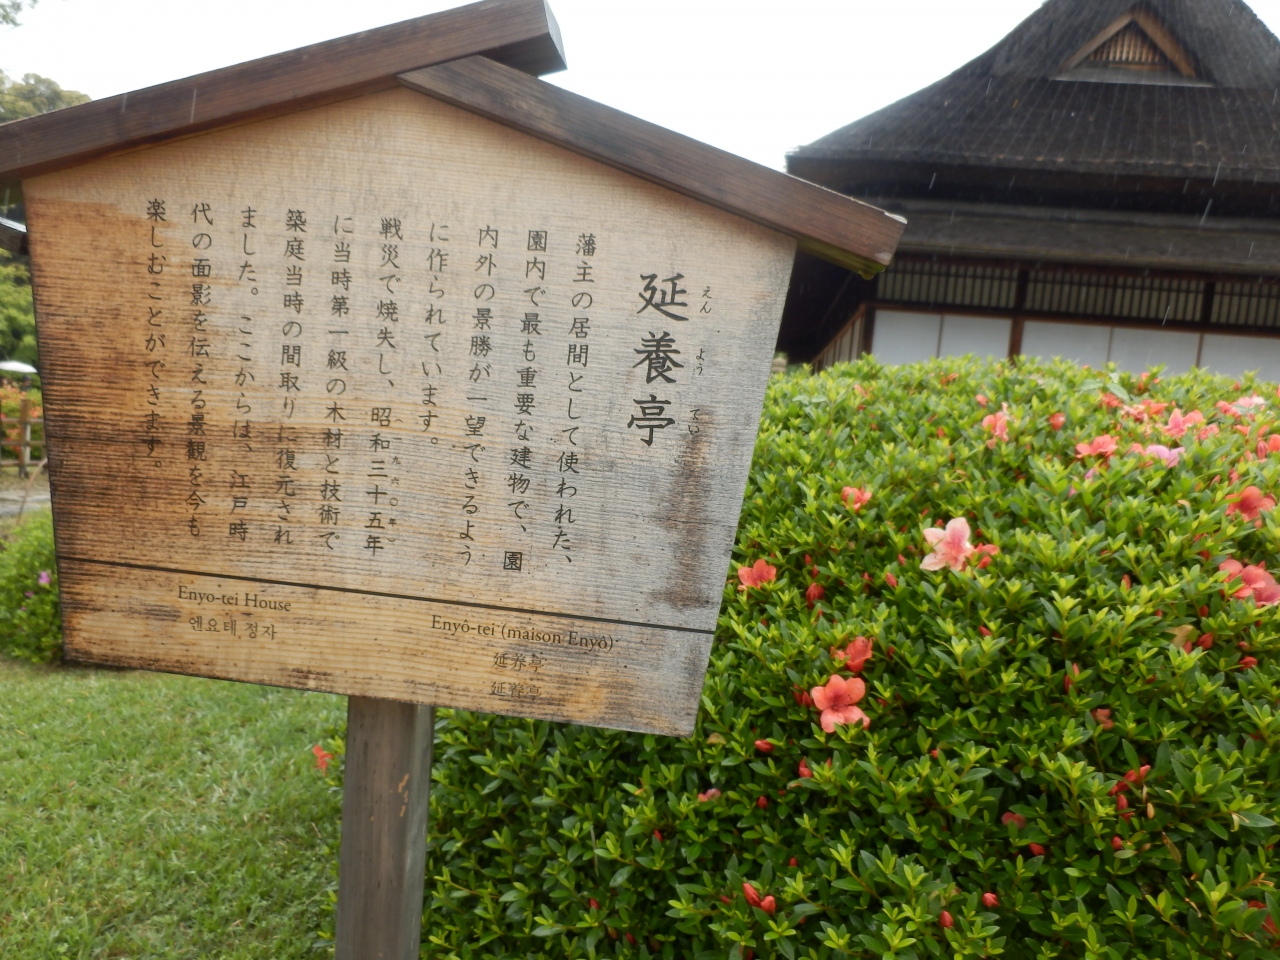 延養亭
えんようてい
藩主の居間として使われた、
園内で最も重要な建物で、園
内外の景勝が一望できるよう
に作られています。
戦災で焼失し、昭和三十五年
（一九六〇年）
に当時第一級の木材と技術で
築庭当時の間取りに復元され
ました。ここからは、江戸時
代の面影を伝える景観を今も
楽しむことができます。
Enyo-tei House
엔요테 정자
Enyô-tei (maison Enyô)
延养亭
延養亭